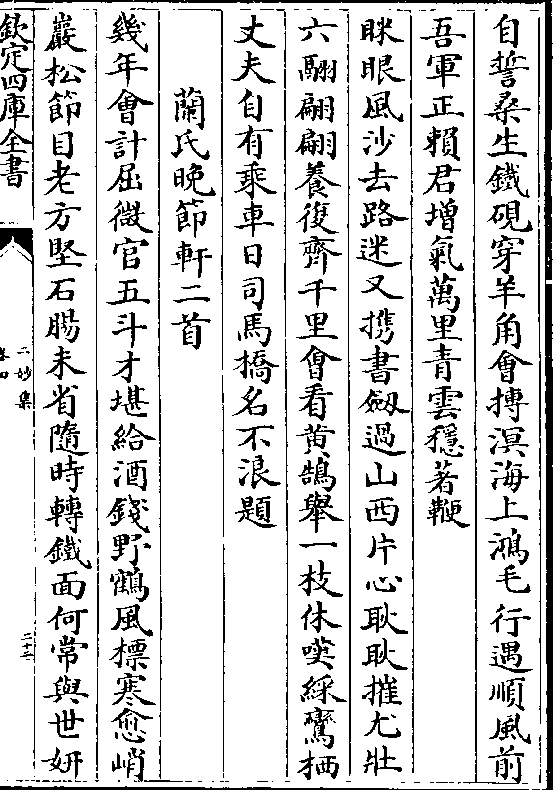 自誓桑生鐵硯穿羊角會摶溟海上鴻毛行遇順風前
吾軍正頼君增氣萬里青雲穩著鞭
眯眼風沙去路迷又携書劔過山西片心耿耿摧尤壯
六翮翩翩養復齊千里㑹看黄鵠舉一枝休嘆綵鸞栖
丈夫自有乘車日司馬橋名不浪題
蘭氏晚節軒二首
幾年會計屈微官五斗才堪給酒錢野鶴風標寒愈峭
巖松節目老方堅石腸未省隨時轉鐵面何常與世妍
欽定四庫全書
二妙集
卷四
二十二